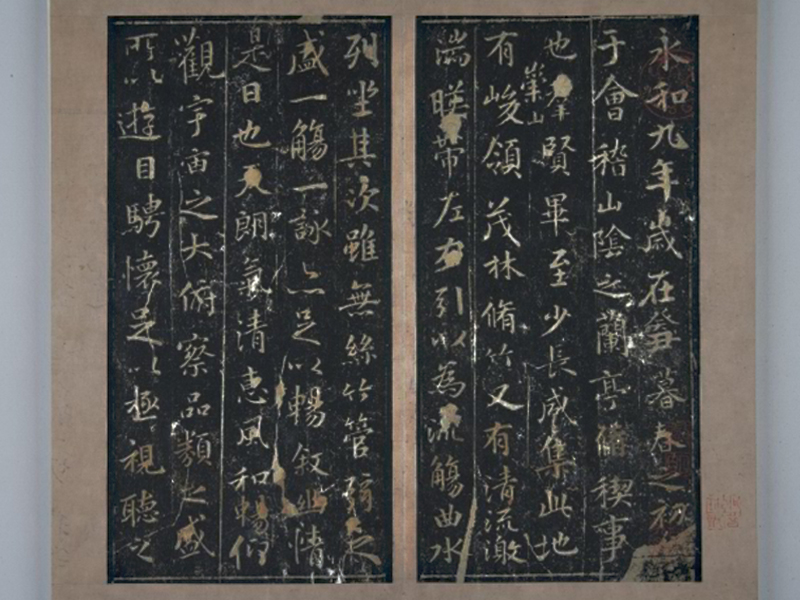 永和九年歲在癸丑暮春之初
于會稽山陰之蘭亭脩稧事
也群賢畢至少長咸集此地
有崇山峻領茂林脩竹又有清流激
湍暎帶左右引以為流觴曲水
列坐其次雖無絲竹管弦之
盛一觴一詠亦足以暢敘幽情
是日也天朗氣清惠風和暢仰
觀宇宙之大俯察品類之盛
所以遊目騁懷足以極視聽之